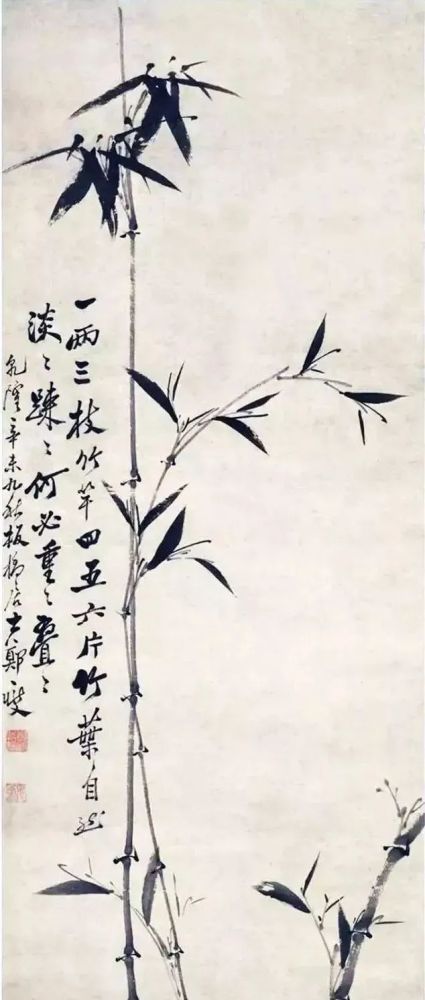 一两三枝竹竿四五六片竹葉自然
淡〻踈〻何必重〻疊〻
乾隆辛未九秋板橋居士鄭燮